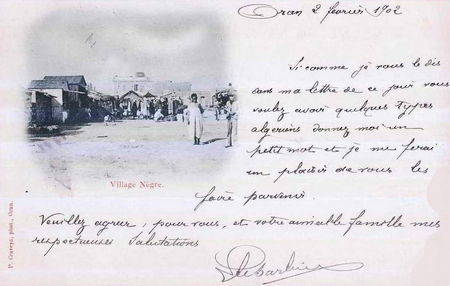 Oran 2 février 1902
Si comme je vous le dis
dans ma lettre de ce jour vous
voulez avoir quelques types
algeriens donnez moi un
petit mot et je me ferai
un plaisir de vous les
faire parvenir.
Village Nègre.
Veuillez agreer, pour vous, et votre aimable famille mes
respectueuses salutations
P. Graveys, phot., Oran.